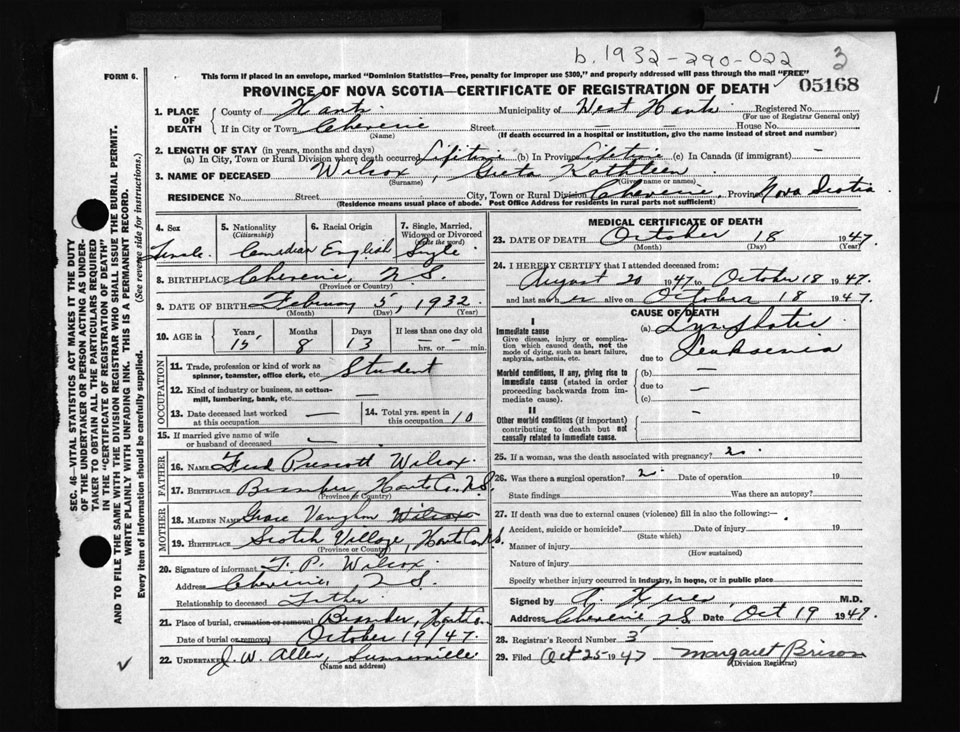 b. 1932-290-022 3
FORM 6.
This form if placed in an envelope, marked "Dominion Statistics—Free, penalty for improper use $300," and properly addressed will pass through the mail "FREE"
PROVINCE OF NOVA SCOTIA—CERTIFICATE OF REGISTRATION OF DEATH 05168
1. PLACE OF DEATH
County of Hants Municipality of West Hants Registered No.
(For use of Registrar General only)
If in City or Town Cheverie Street — House No.
(Name) (If death occurred in a hospital or institution, give the name instead of street and number)
2. LENGTH OF STAY (in years, months and days)
(a) In City, Town or Rural Division where death occurred Lifetime (b) In Province Lifetime (c) In Canada (if immigrant) —
3. NAME OF DECEASED Wilcox, Greta Kathleen
(Surname) (Given name or names)
RESIDENCE No. Street City, Town or Rural Division Cheverie, Province Nova Scotia
(Residence means usual place of abode. Post Office Address for residents in rural parts not sufficient)
4. Sex 5. Nationality (Citizenship) 6. Racial Origin 7. Single, Married, Widowed or Divorced (Write the word)
Female Canadian English Single
8. BIRTHPLACE Cheverie, N.S.
(Province or Country)
9. DATE OF BIRTH February 5, 1932
(Month) (Day) (Year)
10. AGE in Years Months Days If less than one day old
15 8 13 — hrs. or — min.
OCCUPATION
11. Trade, profession or kind of work as spinner, teamster, office clerk, etc. Student
12. Kind of industry or business, as cotton-mill, lumbering, bank, etc. —
13. Date deceased last worked at this occupation — 14. Total yrs. spent in this occupation 10
15. If married give name of wife or husband of deceased —
FATHER
16. NAME Fred Prescott Wilcox
17. BIRTHPLACE Bramber, Hants Co. N.S.
(Province or Country)
MOTHER
18. MAIDEN NAME Grace Vaughn Wilcox
19. BIRTHPLACE Scotch Village, Hants Co. N.S.
(Province or Country)
20. Signature of informant F. P. Wilcox
Address Cheverie, N.S.
Relationship to deceased Father
21. Place of burial, cremation or removal Bramber, Hants Co.
Date of burial or removal October 19/47.
22. UNDERTAKER J. W. Allen, Summerville
(Name and address)
MEDICAL CERTIFICATE OF DEATH
23. DATE OF DEATH October 18 1947.
(Month) (Day) (Year)
24. I HEREBY CERTIFY that I attended deceased from:
August 20 1947 to October 18 1947.
and last saw her alive on October 18 1947.
CAUSE OF DEATH
I
Immediate cause (a) Lymphatic
Give disease, injury or complication which caused death, not the mode of dying, such as heart failure, asphyxia, asthenia, etc.
due to Leukaemia
Morbid conditions, if any, giving rise to immediate cause (stated in order proceeding backwards from immediate cause).
(b) —
due to —
(c)
II
Other morbid conditions (if important) contributing to death but not causally related to immediate cause. —
25. If a woman, was the death associated with pregnancy?
26. Was there a surgical operation? Date of operation 19
State findings Was there an autopsy?
27. If death was due to external causes (violence) fill in also the following:—
Accident, suicide or homicide? Date of injury 19
(State which)
Manner of injury
(How sustained)
Nature of injury
Specify whether injury occurred in industry, in home, or in public place
Signed by M.D.
Address Cheverie N.S. Date Oct 19 1947.
28. Registrar's Record Number 3
29. Filed Oct 25 1947 Margaret Brison
(Division Registrar)
SEC. 46—VITAL STATISTICS ACT MAKES IT THE DUTY
OF THE UNDERTAKER OR PERSON ACTING AS UNDER-
TAKER TO OBTAIN ALL THE PARTICULARS REQUIRED
IN THE "CERTIFICATE OF REGISTRATION OF DEATH"
AND TO FILE THE SAME WITH THE DIVISION REGISTRAR WHO SHALL ISSUE THE BURIAL PERMIT.
WRITE PLAINLY WITH UNFADING INK. THIS IS A PERMANENT RECORD.
Every item of information should be carefully supplied. (See reverse side for instructions.)